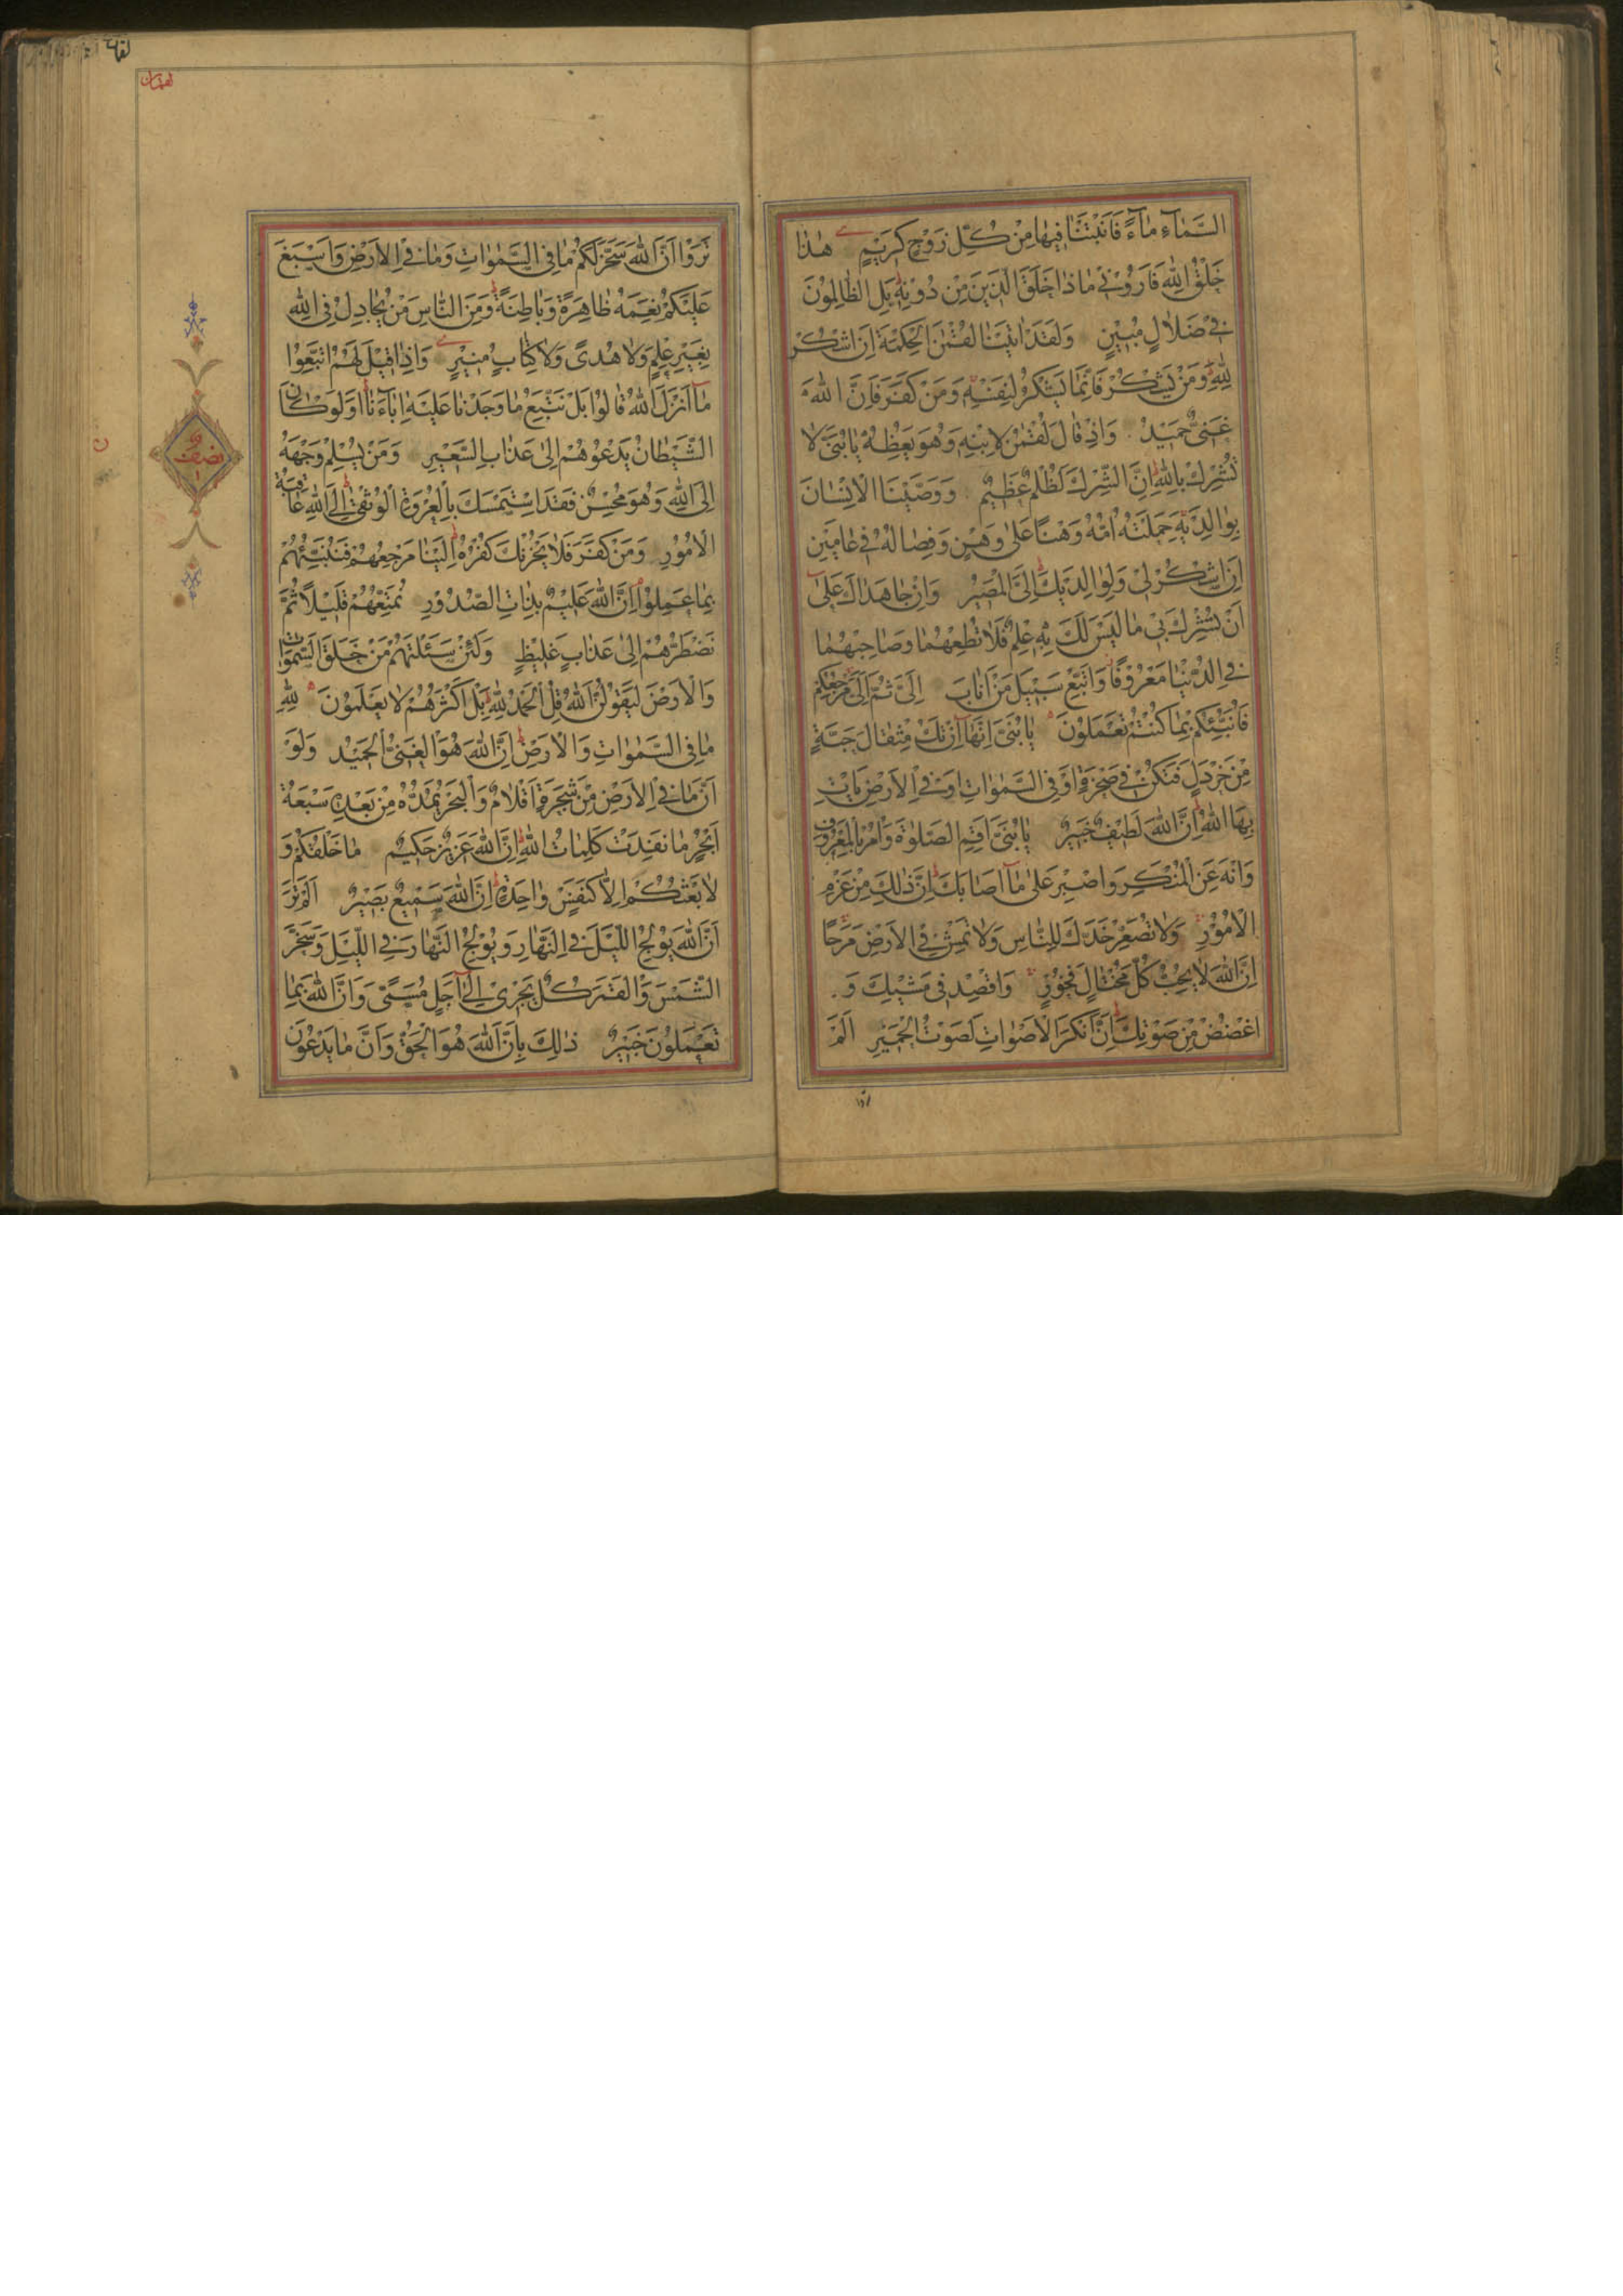 السَّمَاۤءِ مَاۤءً فَاَنْبَتْنَا فِيهَا مِنْ كُلِّ زَوْجٍ كَرِيمٍ هٰذَا
خَلْقُ اللّٰهِ فَاَرُوْنِي مَاذَا خَلَقَ الَّذِينَ مِنْ دُونِهِ بَلِ الظَّالِمُوْنَ
فِي ضَلَالٍ مُبِينٍ وَلَقَدْ اٰتَيْنَا لُقْمٰنَ الْحِكْمَةَ اَنِ اشْكُرْ
لِلّٰهِ وَمَنْ يَشْكُرْ فَاِنَّمَا يَشْكُرُ لِنَفْسِهِ وَمَنْ كَفَرَ فَاِنَّ اللّٰهَ
غَنِيٌّ حَمِيدٌ وَاِذْ قَالَ لُقْمٰنُ لِابْنِهِ وَهُوَ يَعِظُهُ يَا بُنَيَّ لَا
تُشْرِكْ بِاللّٰهِ اِنَّ الشِّرْكَ لَظُلْمٌ عَظِيمٌ وَوَصَّيْنَا الْاِنْسَانَ
بِوَالِدَيْهِ حَمَلَتْهُ اُمُّهُ وَهْنًا عَلٰى وَهْنٍ وَفِصَالُهُ فِي عَامَيْنِ
اَنِ اشْكُرْ لِي وَلِوَالِدَيْكَ اِلَيَّ الْمَصِيرُ وَاِنْ جَاهَدَاكَ عَلٰىۤ
اَنْ تُشْرِكَ بِي مَا لَيْسَ لَكَ بِهِ عِلْمٌ فَلَا تُطِعْهُمَا وَصَاحِبْهُمَا
فِي الدُّنْيَا مَعْرُوفًا وَاتَّبِعْ سَبِيلَ مَنْ اَنَابَ اِلَيَّ ثُمَّ اِلَيَّ مَرْجِعُكُمْ
فَاُنَبِّئُكُمْ بِمَا كُنْتُمْ تَعْمَلُونَ يَا بُنَيَّ اِنَّهَاۤ اِنْ تَكُ مِثْقَالَ حَبَّةٍ
مِنْ خَرْدَلٍ فَتَكُنْ فِي صَخْرَةٍ اَوْ فِي السَّمٰوَاتِ اَوْ فِي الْاَرْضِ يَأْتِ
بِهَا اللّٰهُ اِنَّ اللّٰهَ لَطِيفٌ خَبِيرٌ يَا بُنَيَّ اَقِمِ الصَّلٰوةَ وَاْمُرْ بِالْمَعْرُوفِ
وَانْهَ عَنِ الْمُنْكَرِ وَاصْبِرْ عَلٰى مَاۤ اَصَابَكَ اِنَّ ذٰلِكَ مِنْ عَزْمِ
الْاُمُوْرِ وَلَا تُصَعِّرْ خَدَّكَ لِلنَّاسِ وَلَا تَمْشِ فِي الْاَرْضِ مَرَحًا
اِنَّ اللّٰهَ لَا يُحِبُّ كُلَّ مُخْتَالٍ فَخُوْرٍ وَاقْصِدْ فِي مَشْيِكَ وَ
اغْضُضْ مِنْ صَوْتِكَ اِنَّ اَنْكَرَ الْاَصْوَاتِ لَصَوْتُ الْحَمِيْرِ اَلَمْ
تَرَوْا اَنَّ اللّٰهَ سَخَّرَ لَكُمْ مَا فِي السَّمٰوَاتِ وَمَا فِي الْاَرْضِ وَاَسْبَغَ
عَلَيْكُمْ نِعَمَهُ ظَاهِرَةً وَبَاطِنَةً وَمِنَ النَّاسِ مَنْ يُجَادِلُ فِي اللّٰهِ
بِغَيْرِ عِلْمٍ وَلَا هُدًى وَلَا كِتَابٍ مُنِيرٍ وَاِذَا قِيلَ لَهُمُ اتَّبِعُوا
مَاۤ اَنْزَلَ اللّٰهُ قَالُوا بَلْ نَتَّبِعُ مَا وَجَدْنَا عَلَيْهِ اٰبَاۤءَنَا اَوَلَوْ كَانَ
الشَّيْطَانُ يَدْعُوهُمْ اِلٰى عَذَابِ السَّعِيرِ وَمَنْ يُسْلِمْ وَجْهَهُ
اِلَى اللّٰهِ وَهُوَ مُحْسِنٌ فَقَدِ اسْتَمْسَكَ بِالْعُرْوَةِ الْوُثْقٰى وَاِلَى اللّٰهِ عَاقِبَةُ
الْاُمُوْرِ وَمَنْ كَفَرَ فَلَا يَحْزُنْكَ كُفْرُهُ اِلَيْنَا مَرْجِعُهُمْ فَنُنَبِّئُهُمْ
بِمَا عَمِلُوْا اِنَّ اللّٰهَ عَلِيمٌ بِذَاتِ الصُّدُوْرِ نُمَتِّعُهُمْ قَلِيلًا ثُمَّ
نَضْطَرُّهُمْ اِلٰى عَذَابٍ غَلِيظٍ وَلَئِنْ سَئَلْتَهُمْ مَنْ خَلَقَ السَّمٰوَاتِ
وَالْاَرْضَ لَيَقُولُنَّ اللّٰهُ قُلِ الْحَمْدُ لِلّٰهِ بَلْ اَكْثَرُهُمْ لَا يَعْلَمُوْنَ لِلّٰهِ
مَا فِي السَّمٰوَاتِ وَالْاَرْضِ اِنَّ اللّٰهَ هُوَ الْغَنِيُّ الْحَمِيْدُ وَلَوْ
اَنَّ مَا فِي الْاَرْضِ مِنْ شَجَرَةٍ اَقْلَامٌ وَالْبَحْرُ يَمُدُّهُ مِنْ بَعْدِهِ سَبْعَةُ
اَبْحُرٍ مَا نَفِدَتْ كَلِمَاتُ اللّٰهِ اِنَّ اللّٰهَ عَزِيزٌ حَكِيمٌ مَا خَلْقُكُمْ وَ
لَا بَعْثُكُمْ اِلَّا كَنَفْسٍ وَاحِدَةٍ اِنَّ اللّٰهَ سَمِيعٌ بَصِيْرٌ اَلَمْ تَرَ
اَنَّ اللّٰهَ يُوْلِجُ اللَّيْلَ فِي النَّهَارِ وَيُوْلِجُ النَّهَارَ فِي اللَّيْلِ وَسَخَّرَ
الشَّمْسَ وَالْقَمَرَ كُلٌّ يَجْرِي اِلٰىۤ اَجَلٍ مُسَمًّى وَاَنَّ اللّٰهَ بِمَا
تَعْمَلُونَ خَبِيرٌ ذٰلِكَ بِاَنَّ اللّٰهَ هُوَ الْحَقُّ وَاَنَّ مَا يَدْعُوْنَ
نصف